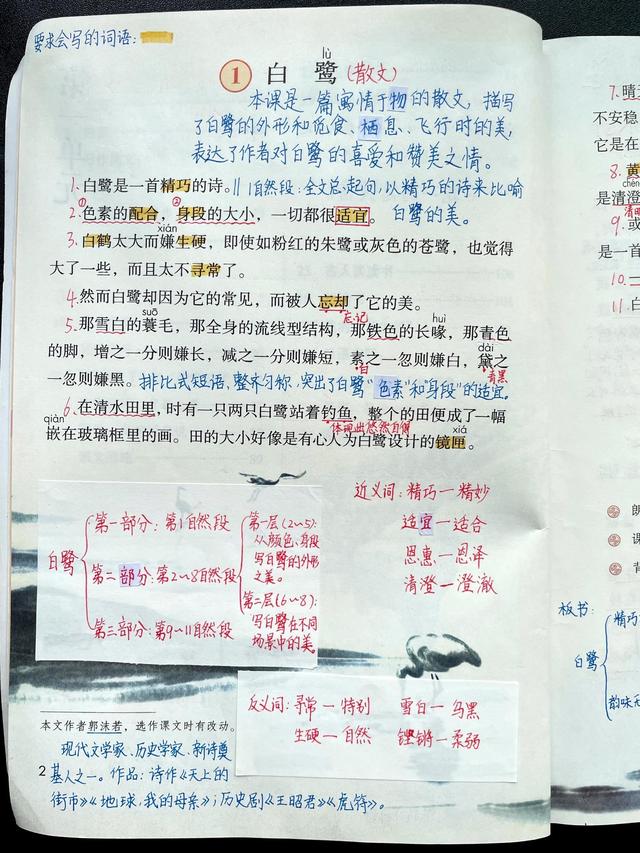 要求会写的词语：
lù
1 白鹭(散文)
本课是一篇寓情于物的散文，描写
了白鹭的外形和觅食、栖息、飞行时的美，
表达了作者对白鹭的喜爱和赞美之情。
1.白鹭是一首精巧的诗。‖1自然段：全文总起句，以精巧的诗来比喻
① ②
2.色素的配合，身段的大小，一切都很适宜。白鹭的美。
xián
3.白鹤太大而嫌生硬，即使如粉红的朱鹭或灰色的苍鹭，也觉得
大了一些，而且太不寻常了。
4.然而白鹭却因为它的常见，而被人忘却了它的美。
suō 忘记 huì
5.那雪白的蓑毛，那全身的流线型结构，那铁色的长喙，那青色
dài
的脚，增之一分则嫌长，减之一分则嫌短，素之一忽则嫌白，黛之
白 青黑
一忽则嫌黑。排比式短语，整齐匀称，突出了白鹭“色素”和“身段”的适宜。
6.在清水田里，时有一只两只白鹭站着钓鱼，整个的田便成了一幅
qiàn 体现出悠然自得 xiá
嵌在玻璃框里的画。田的大小好像是有心人为白鹭设计的镜匣。
白鹭
第一部分：第1自然段
第二部分：第2~8自然段
第一层(2~5)：
从颜色、身段
写白鹭的外形
之美。
第二层(6~8)：
写白鹭在不同
场景中的美。
第三部分：第9~11自然段
近义词：精巧一精妙
适宜一适合
恩惠一恩泽
清澄一澄澈
反义词：寻常一特别 雪白一乌黑
生硬一自然 铿锵一柔弱
本文作者郭沫若，选作课文时有改动。
现代文学家、历史学家、新诗奠
2 基人之一。作品：诗作《天上的
街市》《地球，我的母亲》；历史剧《王昭君》《虎符》。
7.晴
不安稳
它是在
8.黄
chéng
是清澄
9.或
是一首
10.一
11.白
朗
课
背
板书：
白鹭
精巧
韵味无